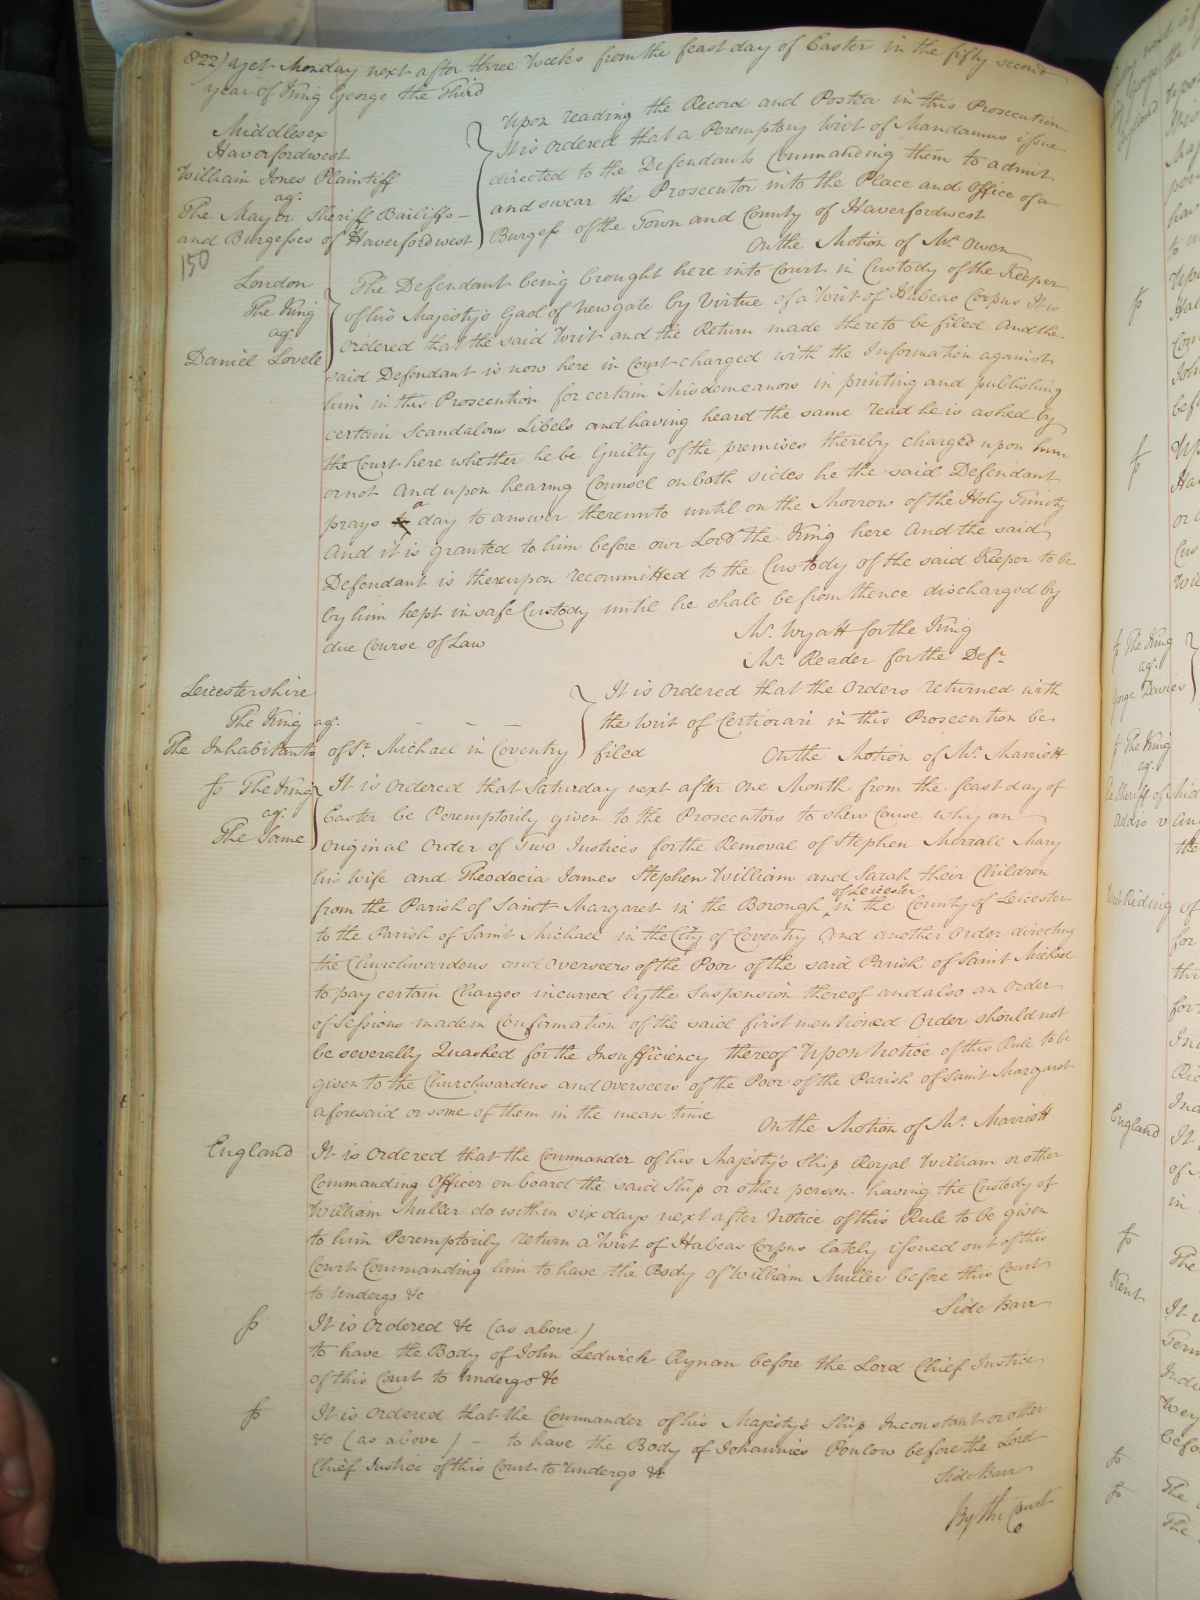 822) yet Monday next after three Weeks from the feast day of Easter in the fifty second
year of King George the Third
Middlesex
Haverfordwest
William Jones Plaintiff
agt.
The Mayor Sheriff Bailiffs
and Burgesses of Haverfordwest
Upon reading the Record and Postea in this Prosecution
It is ordered that a Peremptory Writ of Mandamus issue
directed to the Defendants Commanding them to admit
and swear the Prosecutor into the Place and Office of a
Burgess of the Town and County of Haverfordwest
On the Motion of Mr. Owen
150
London
The King
agt.
Daniel Lovele
The Defendant being brought here into Court in Custody of the Keeper
of his Majesty's Gaol of Newgate by Virtue of a Writ of Habeas Corpus It is
ordered that the said Writ and the Return made thereto be filed And the
said Defendant is now here in Court charged with the Information against
him in this Prosecution for certain Misdemeanors in printing and publishing
certain Scandalous Libels and having heard the same read he is asked by
the Court here whether he be Guilty of the premises thereby charged upon him
or not And upon hearing Counsel on both sides he the said Defendant
prays a day to answer thereunto until on the Morrow of the Holy Trinity
And it is granted to him before our Lord the King here And the said
Defendant is thereupon recommitted to the Custody of the said Keeper to be
by him kept in safe Custody until he shall be from thence discharged by
due Course of Law
Mr. Wyatt for the King
Mr. Reader for the Deft.
Leicestershire
The King agt.
The Inhabitants of St. Michael in Coventry
It is Ordered that the Orders returned with
the Writ of Certiorari in this Prosecution be
filed
On the Motion of Mr. Marriott
fo The King
agt.
The Same
It is ordered that Saturday next after One Month from the feast day of
Easter be Peremptorily given to the Prosecutors to shew Cause why an
Original Order of Two Justices for the Removal of Stephen Merrall Mary
his Wife and Theodocia James Stephen William and Sarah their Children
from the Parish of Saint Margaret in the Borough of Leicester in the County of Leicester
to the Parish of Saint Michael in the City of Coventry And another Order directing
the Churchwardens and Overseers of the Poor of the said Parish of Saint Michael
to pay certain Charges incurred by the Suspension thereof and also an Order
of Sessions made in Confirmation of the said first mentioned Order should not
be severally Quashed for the Insufficiency thereof Upon Notice of this Rule to be
given to the Churchwardens and Overseers of the Poor of the Parish of Saint Margaret
aforesaid or some of them in the mean time
On the Motion of Mr. Marriott
England
It is Ordered that the Commander of his Majesty's Ship Royal William or other
Commanding Officer on board the said Ship or other person having the Custody of
William Muller do within six days next after Notice of this Rule to be given
to him Peremptorily return a Writ of Habeas Corpus lately issued out of this
Court Commanding him to have the Body of William Muller before this Court
to Undergo &c
Side Barr
fo
It is Ordered &c (as above)
to have the Body of John Ledwick Rynan before the Lord Chief Justice
of this Court to Undergo &c
fo
It is Ordered that the Commander of his Majesty's Ship Inconstant or other
&c (as above) - to have the Body of Johannies Ponlow before the Lord
Chief Justice of this Court to Undergo &c
Side Barr
By the Court
England
Kent
fo The King
agt.
George Davies
fo The King
agt.
West Riding
England
Kent